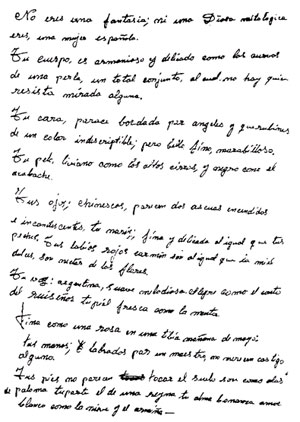 No eres una fantasia; ni una Diosa mitologica
eres, una mujer española.
Tu cuerpo, es armonioso y delicado como los
de una perla, un total conjunto, al cual no hay quien
resista mirada alguna.
Tu cara, parece bordada por angeles y querubines
de un color indescriptible; pero bello fino, marabilloso.
Tu pelo liviano como los altos cirros, y negro como el
acabache.
Tus ojos; chinescos, parecen dos ascuas encendidas
e incandescentes, tu nariz; fina y delicada al igual que tus
Tus labios rojos carmin son al igual que la miel
dulces, son nectar de las flores.
Tu voz: argentina, suave melodiosa alegre como el canto
del ruiseñor tu piel fresca como la menta.
fina como una rosa en una tibia mañana de mayo;
tus manos; labradas por un maestro, no merecen castigo
alguno.
Tus pies no parecen tocar el suelo son como alas
de paloma tu porte el de una reyna tu alma bonanza amor
blanco como la nieve y el armiño